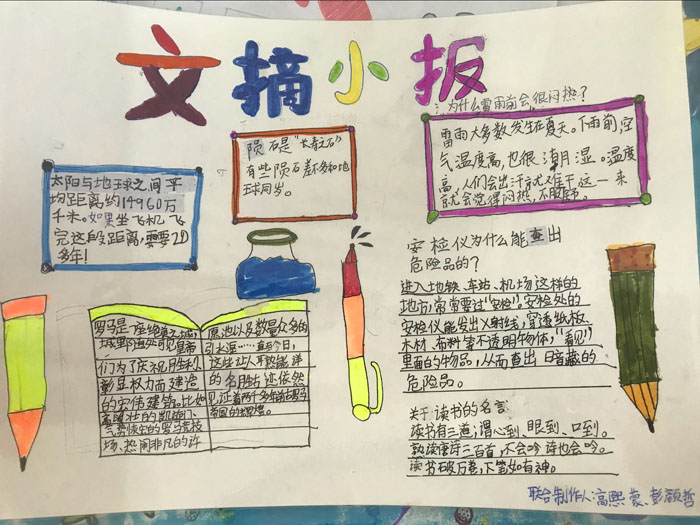 文摘小报
太阳与地球之间平
均距离约14960万
千米。如果坐飞机飞
完这段距离,需要20
多年!
陨石是“长寿之石”
有些陨石差不多和地
球同岁。
为什么雷雨前会很闷热?
雷雨大多数发生在夏天。下雨前,空
气温度高,也很潮湿。温度
高,人们会出汗,就又性干这一来
就会觉得闷热,不舒服。
安检仪为什么能查出
危险品的?
进入地铁、车站、机场这样的
地方,常常要过“安检”。安检处的
安检仪能发出X射线,穿透纸板、
木材、布料等不透明物体,“看见”
里面的物品,从而查出暗藏的
危险品。
罗马是一座绝美之城,
城野随处可见皇帝
们为了庆祝胜利以
彰显权力而建造
的宏伟建筑。比如
高雄壮的凯旋门、
气势恢宏的罗马竞技
场、热闹非凡的许
愿池以及数量众多的
引水渠……直至今日,
这些让人叹为观止
的名胜古迹依然
见证着两千多年前古罗马
帝国的辉煌。
关于读书的名言
读书有三道,谓心到、眼到、口到。
熟读唐诗三百首,不会吟诗也会吟。
读书破万卷,下笔如有神。
联合制作人:高熙蒙、彭颢哲